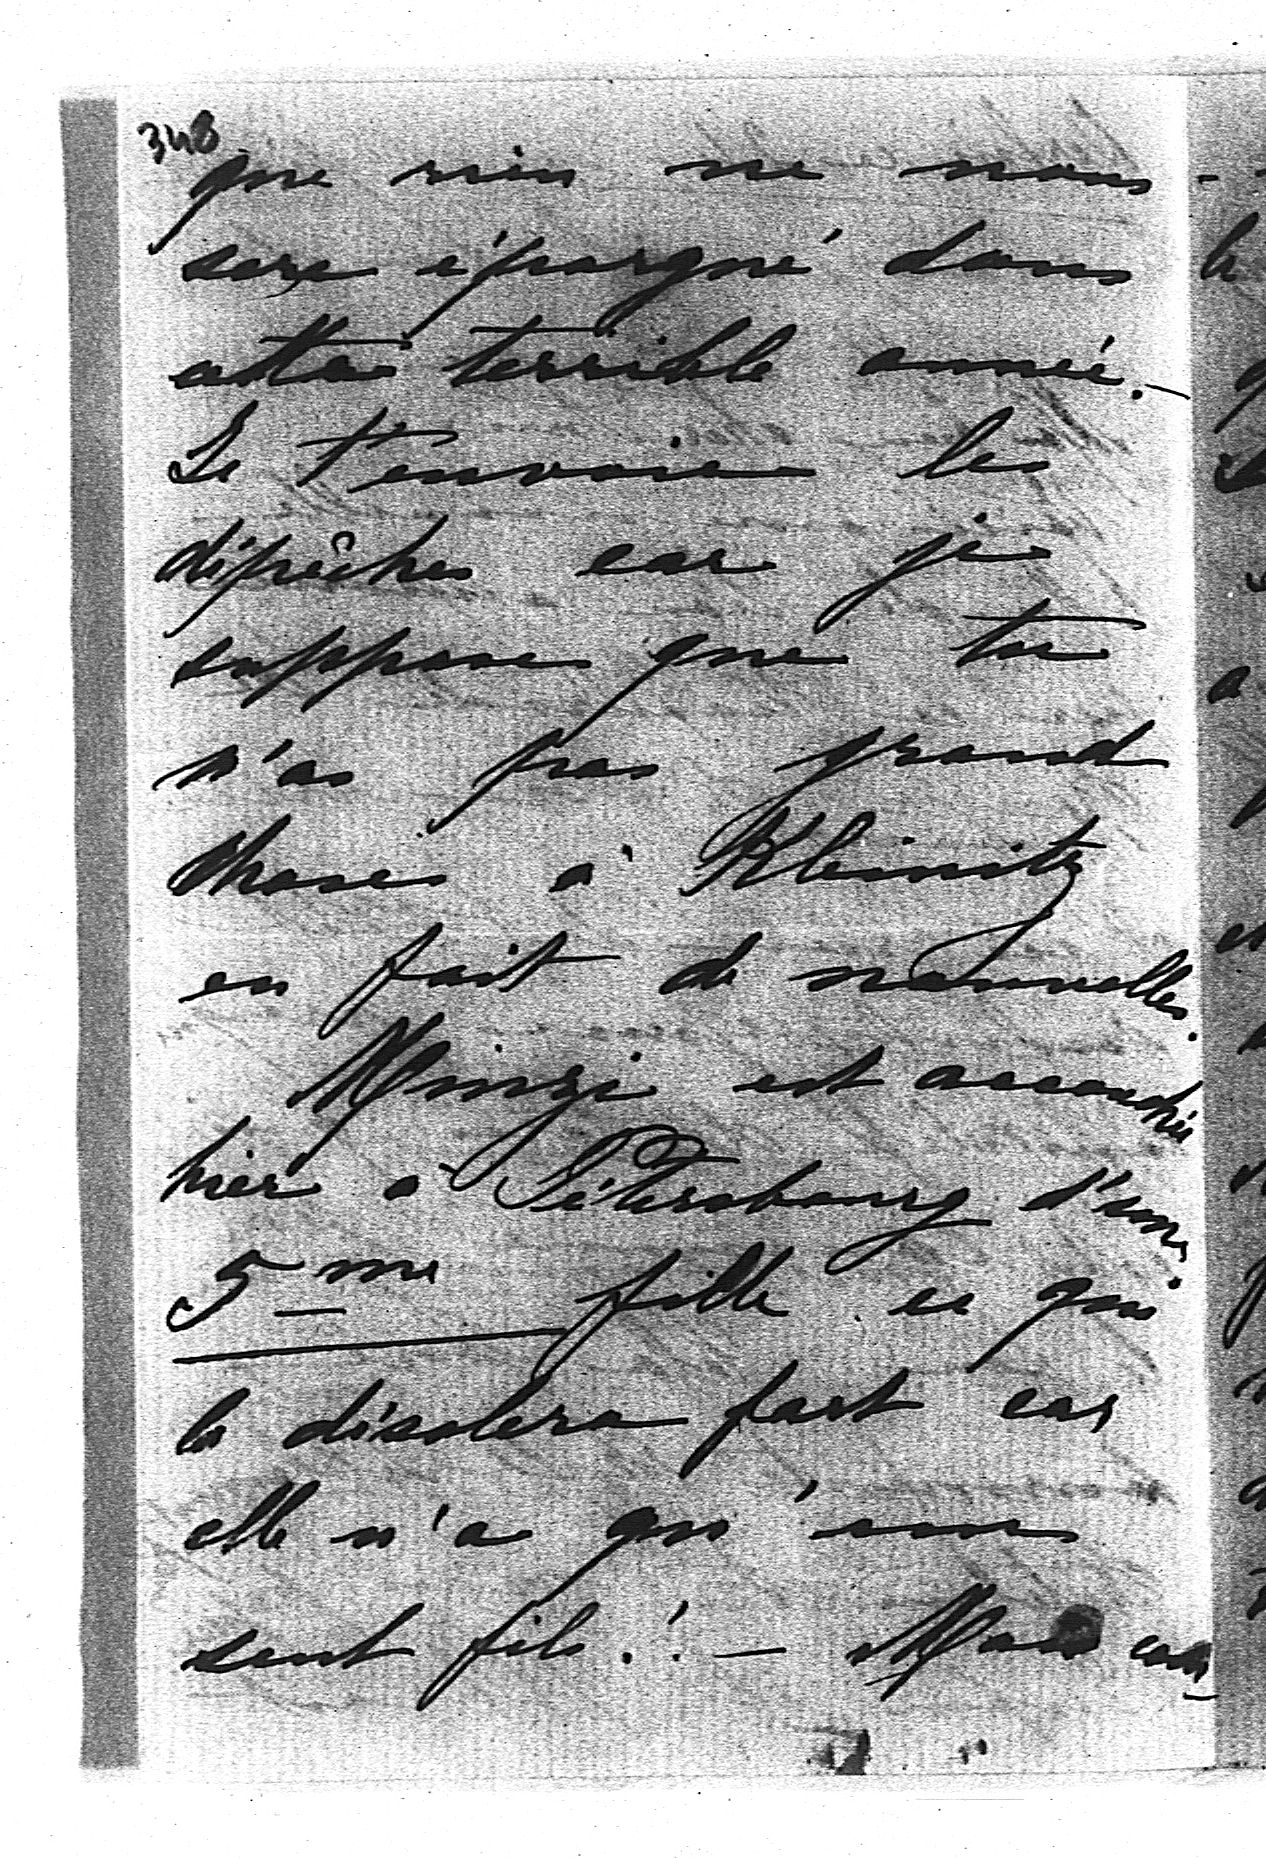 348
que rien ne nous
sera épargné dans
cette terrible année. —
Je t'envoie les
dépêches car je
suppose que tu
n'as pas grand
chose à Kleinitz
en fait de nouvelles.
Minzi est accouchée
hier à Pétersbourg d'une
5me fille ce qui
la désolera fort car
elle n'a qu'un
seul fils ! — Mon